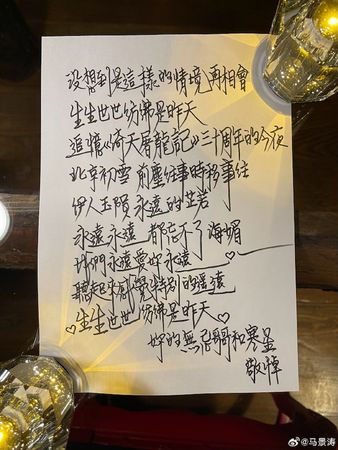 没想到是這樣的情境再相會
生生世世彷彿是昨天
追憶《倚天屠龍記》三十周年的今夜
北京初雪 前塵往事時移事往
伊人玉殞 永遠的芷若
永遠永遠 都忘不了海媚
我們永遠要好永遠
聽起來感覺特別的遙遠
生生世世彷彿是昨天
妳的無忌哥和寒星
敬悼
@马景涛